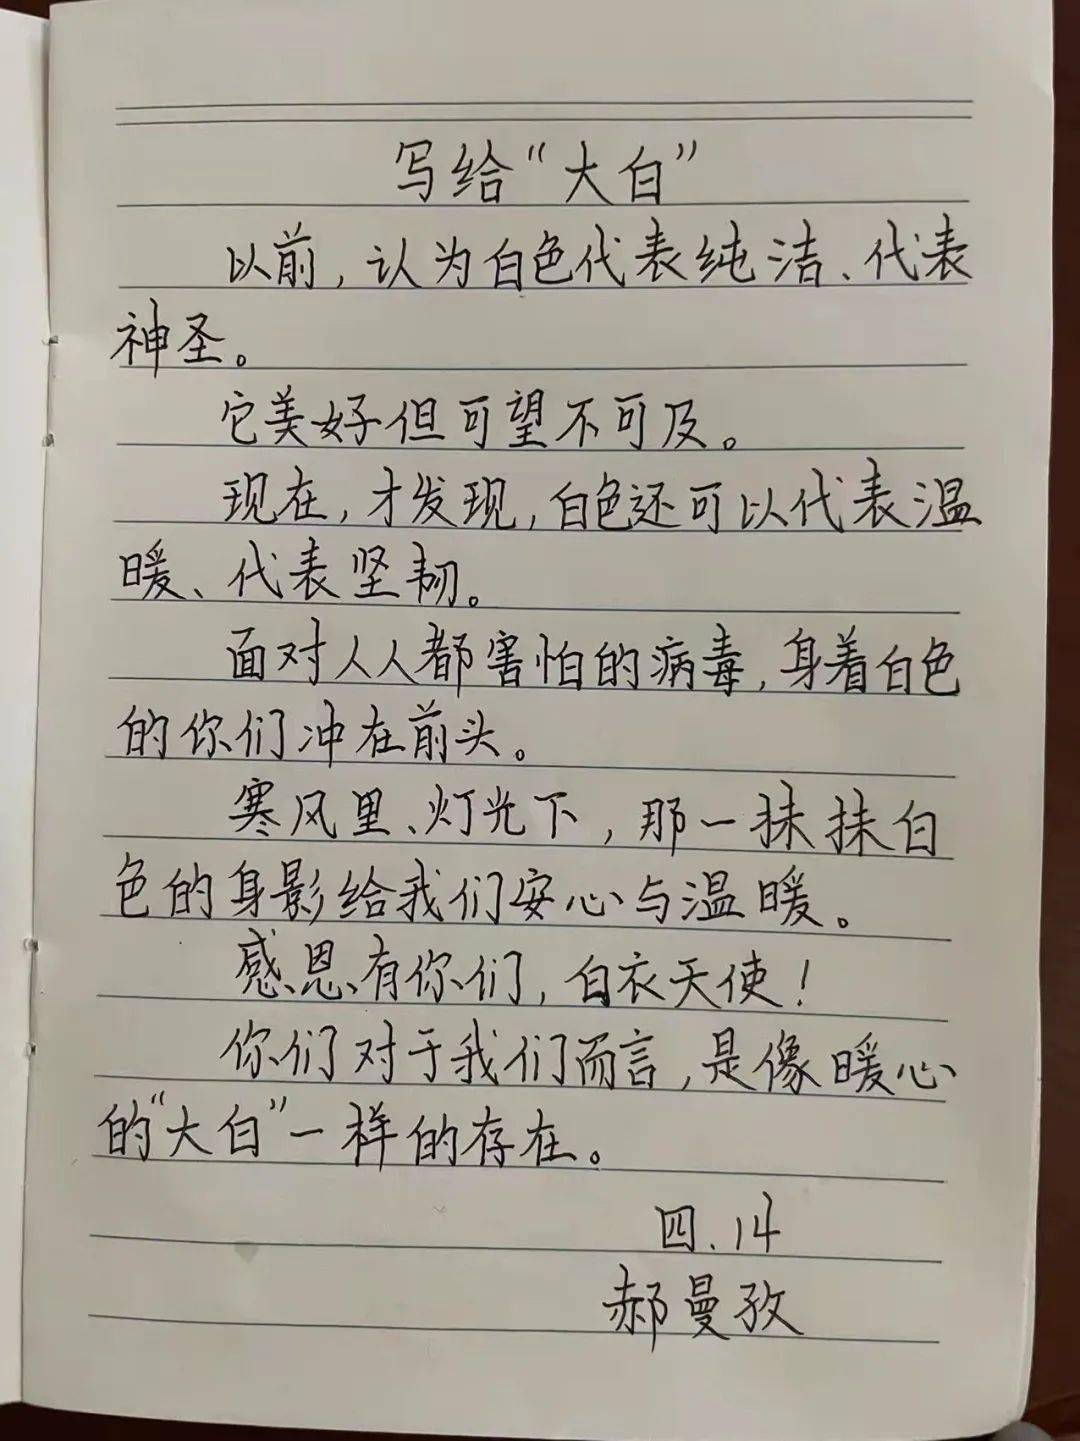 写给“大白”
以前，认为白色代表纯洁、代表
神圣。
它美好但可望不可及。
现在，才发现，白色还可以代表温
暖、代表坚韧。
面对人人都害怕的病毒，身着白色
的你们冲在前头。
寒风里、灯光下，那一抹抹白
色的身影给我们安心与温暖。
感恩有你们，白衣天使！
你们对于我们而言，是像暖心
的“大白”一样的存在。
四.14
郝曼孜